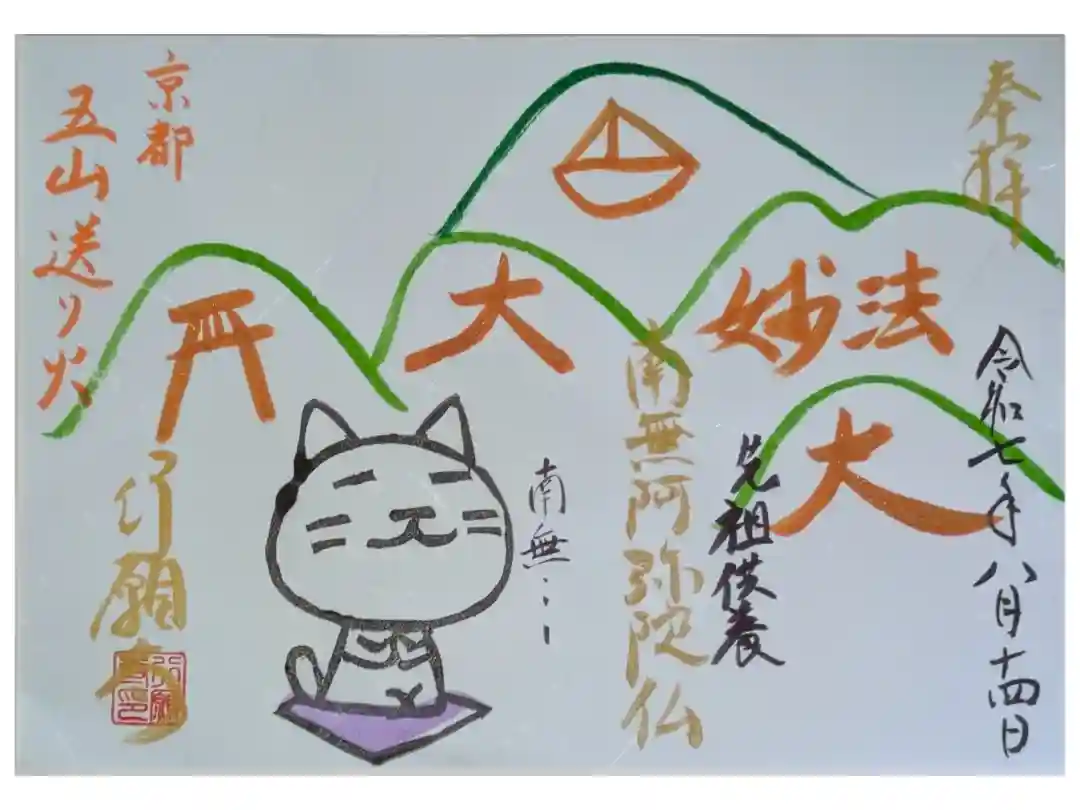 奉拝
令和七年八月十四日
妙法
大
先祖供養
南無阿弥陀仏
大
南無、、、
京都
五山送り火
行願寺